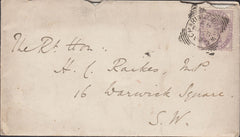 The Rt Hon:
H. C. Raikes. M.P
16 Warwick Square.
S.W.